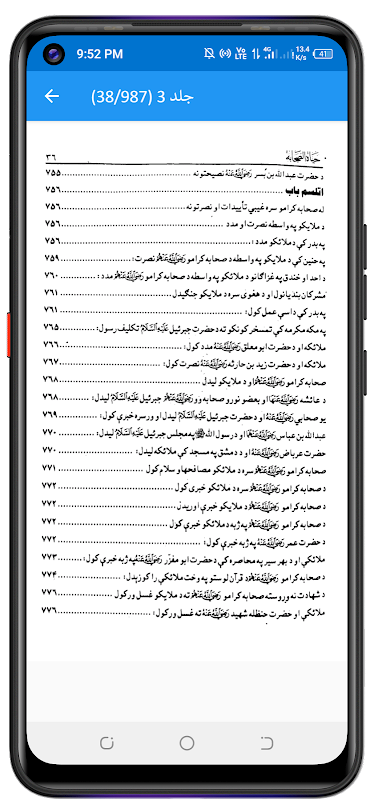 9:52 PM
Vo LTE 4G 4G 13.4 K/s 41
جلد 3 (38/987)
حیاة الصحابه ۳۶
د حضرت عبدالله بن بُسر رَضِيَ اللهُ عَنْهُ نصیحتونه ۷۵۵
اتلسم باب ۷۵۶
له صحابه کرامو سره غیبي تأییدات او نصرتونه ۷۵۶
د ملایکو په واسطه نصرت او مدد ۷۵۶
په بدر کې د ملائکو مدد: ۷۵۶
په حنین کې د ملایکو په واسطه د صحابه کرامو رَضِيَ اللهُ عَنْهُمْ نصرت: ۷۵۹
د احد او خندق په غزاګانو د ملائکو په واسطه د صحابه کرامو رَضِيَ اللهُ عَنْهُمْ مدد: ۷۶۰
مشرکان بندیانول او د هغوی سره د ملایکو جنګیدل ۷۶۱
په بدر کې داسې عمل کول: ۷۶۱
په مکه مکرمه کې تمسخر کونکو ته د حضرت جبرئیل عَلَيْهِ السَّلَامُ تکلیف رسول: ۷۶۵
ملائکه او د حضرت ابو معلق رَضِيَ اللهُ عَنْهُ مدد کول: ۷۶۶
ملائکه او د حضرت زید بن حارثه رَضِيَ اللهُ عَنْهُ نصرت کول: ۷۶۷
صحابه کرامو رَضِيَ اللهُ عَنْهُمْ او د ملایکو لیدل ۷۶۸
د عائشه رَضِيَ اللهُ عَنْهَا او بعضو نورو صحابه وو رَضِيَ اللهُ عَنْهُمْ جبرئیل عَلَيْهِ السَّلَامُ لیدل: ۷۶۸
یو صحابي رَضِيَ اللهُ عَنْهُ او د حضرت جبرئیل عَلَيْهِ السَّلَامُ لیدل او ورسره خبرې کول: ۷۶۹
عبدالله بن عباس رَضِيَ اللهُ عَنْهُمَا او د رسول الله ﷺ په مجلس جبرئیل عَلَيْهِ السَّلَامُ لیدل: ۷۷۰
حضرت عرباض رَضِيَ اللهُ عَنْهُ او د دمشق په مسجد کې ملائکه لیدل: ۷۷۰
صحابه کرامو رَضِيَ اللهُ عَنْهُمْ سره د ملائکو مصافحه او سلام کول ۷۷۱
د صحابه کرامو رَضِيَ اللهُ عَنْهُمْ سره د ملائکو خبرې کول ۷۷۲
د صحابه کرامو رَضِيَ اللهُ عَنْهُمْ د ملایکو خبرې اوریدل ۷۷۲
د صحابه کرامو رَضِيَ اللهُ عَنْهُمْ په ژبه د ملائکو خبرې کول ۷۷۲
د حضرت عمر رَضِيَ اللهُ عَنْهُ په ژبه خبرې کول: ۷۷۲
ملائکې او د بهرسیر په محاصره کې د حضرت ابو مفزّر رَضِيَ اللهُ عَنْهُ په ژبه خبرې کول: ۷۷۳
د صحابه کرامو رَضِيَ اللهُ عَنْهُمْ د قرآن لوستو په وخت ملائکې راکوزیدل: ۷۷۴
د شهادت نه وروسته صحابه کرامو رَضِيَ اللهُ عَنْهُمْ ته د ملایکو غسل ورکول ۷۷۶
ملائکې او حضرت حنظله شهید رَضِيَ اللهُ عَنْهُ ته غسل ورکول: ۷۷۶